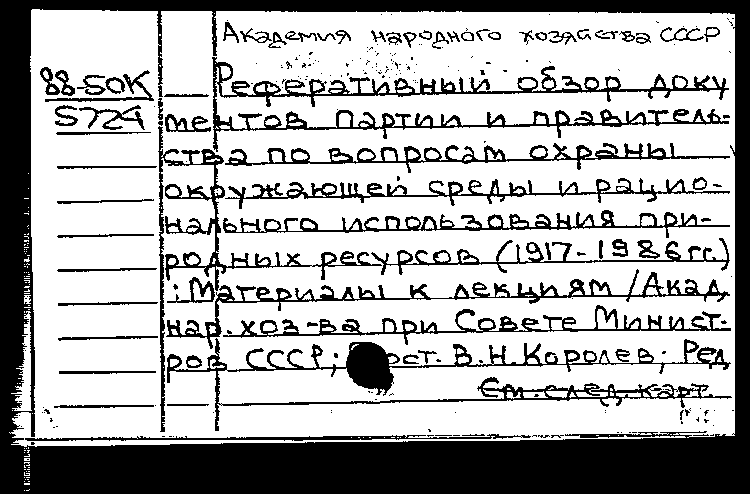 Академия народного хозяйства СССР
88-50К
5724
Реферативный обзор доку
ментов партии и правитель-
ства по вопросам охраны
окружающей среды и рацио-
нального использования при-
родных ресурсов (1917-1986гг.)
: Материалы к лекциям / Акад,
нар. хоз-ва при Совете Минист-
ров СССР; В.Н. Королев; Ред
См. след. карт.